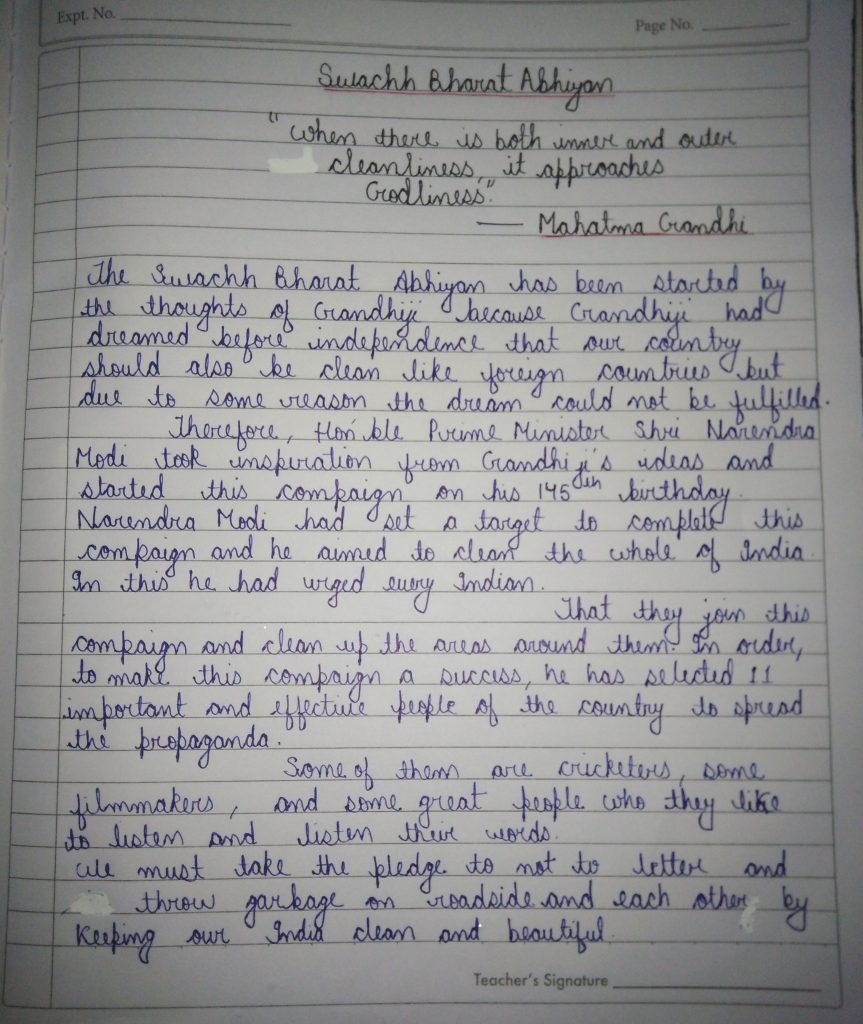 Expt. No.
Page No.
Swachh Bharat Abhiyan
"When there is both inner and outer
cleanliness, it approaches
Godliness."
— Mahatma Gandhi
The Swachh Bharat Abhiyan has been started by
the thoughts of Gandhiji because Gandhiji had
dreamed before independence that our country
should also be clean like foreign countries but
due to some reason the dream could not be fulfilled.
Therefore, Hon'ble Prime Minister Shri Narendra
Modi took inspiration from Gandhiji's ideas and
started this compaign on his 145th birthday.
Narendra Modi had set a target to complete this
compaign and he aimed to clean the whole of India.
In this he had urged every Indian.
That they join this
compaign and clean up the areas around them. In order,
to make this compaign a success, he has selected 11
important and effective people of the country to spread
the propaganda.
Some of them are cricketers, some
filmmakers, and some great people who they like
to listen and listen their words.
We must take the pledge to not to letter and
throw garbage on roadside and each other by
Keeping our India clean and beautiful.
Teacher's Signature